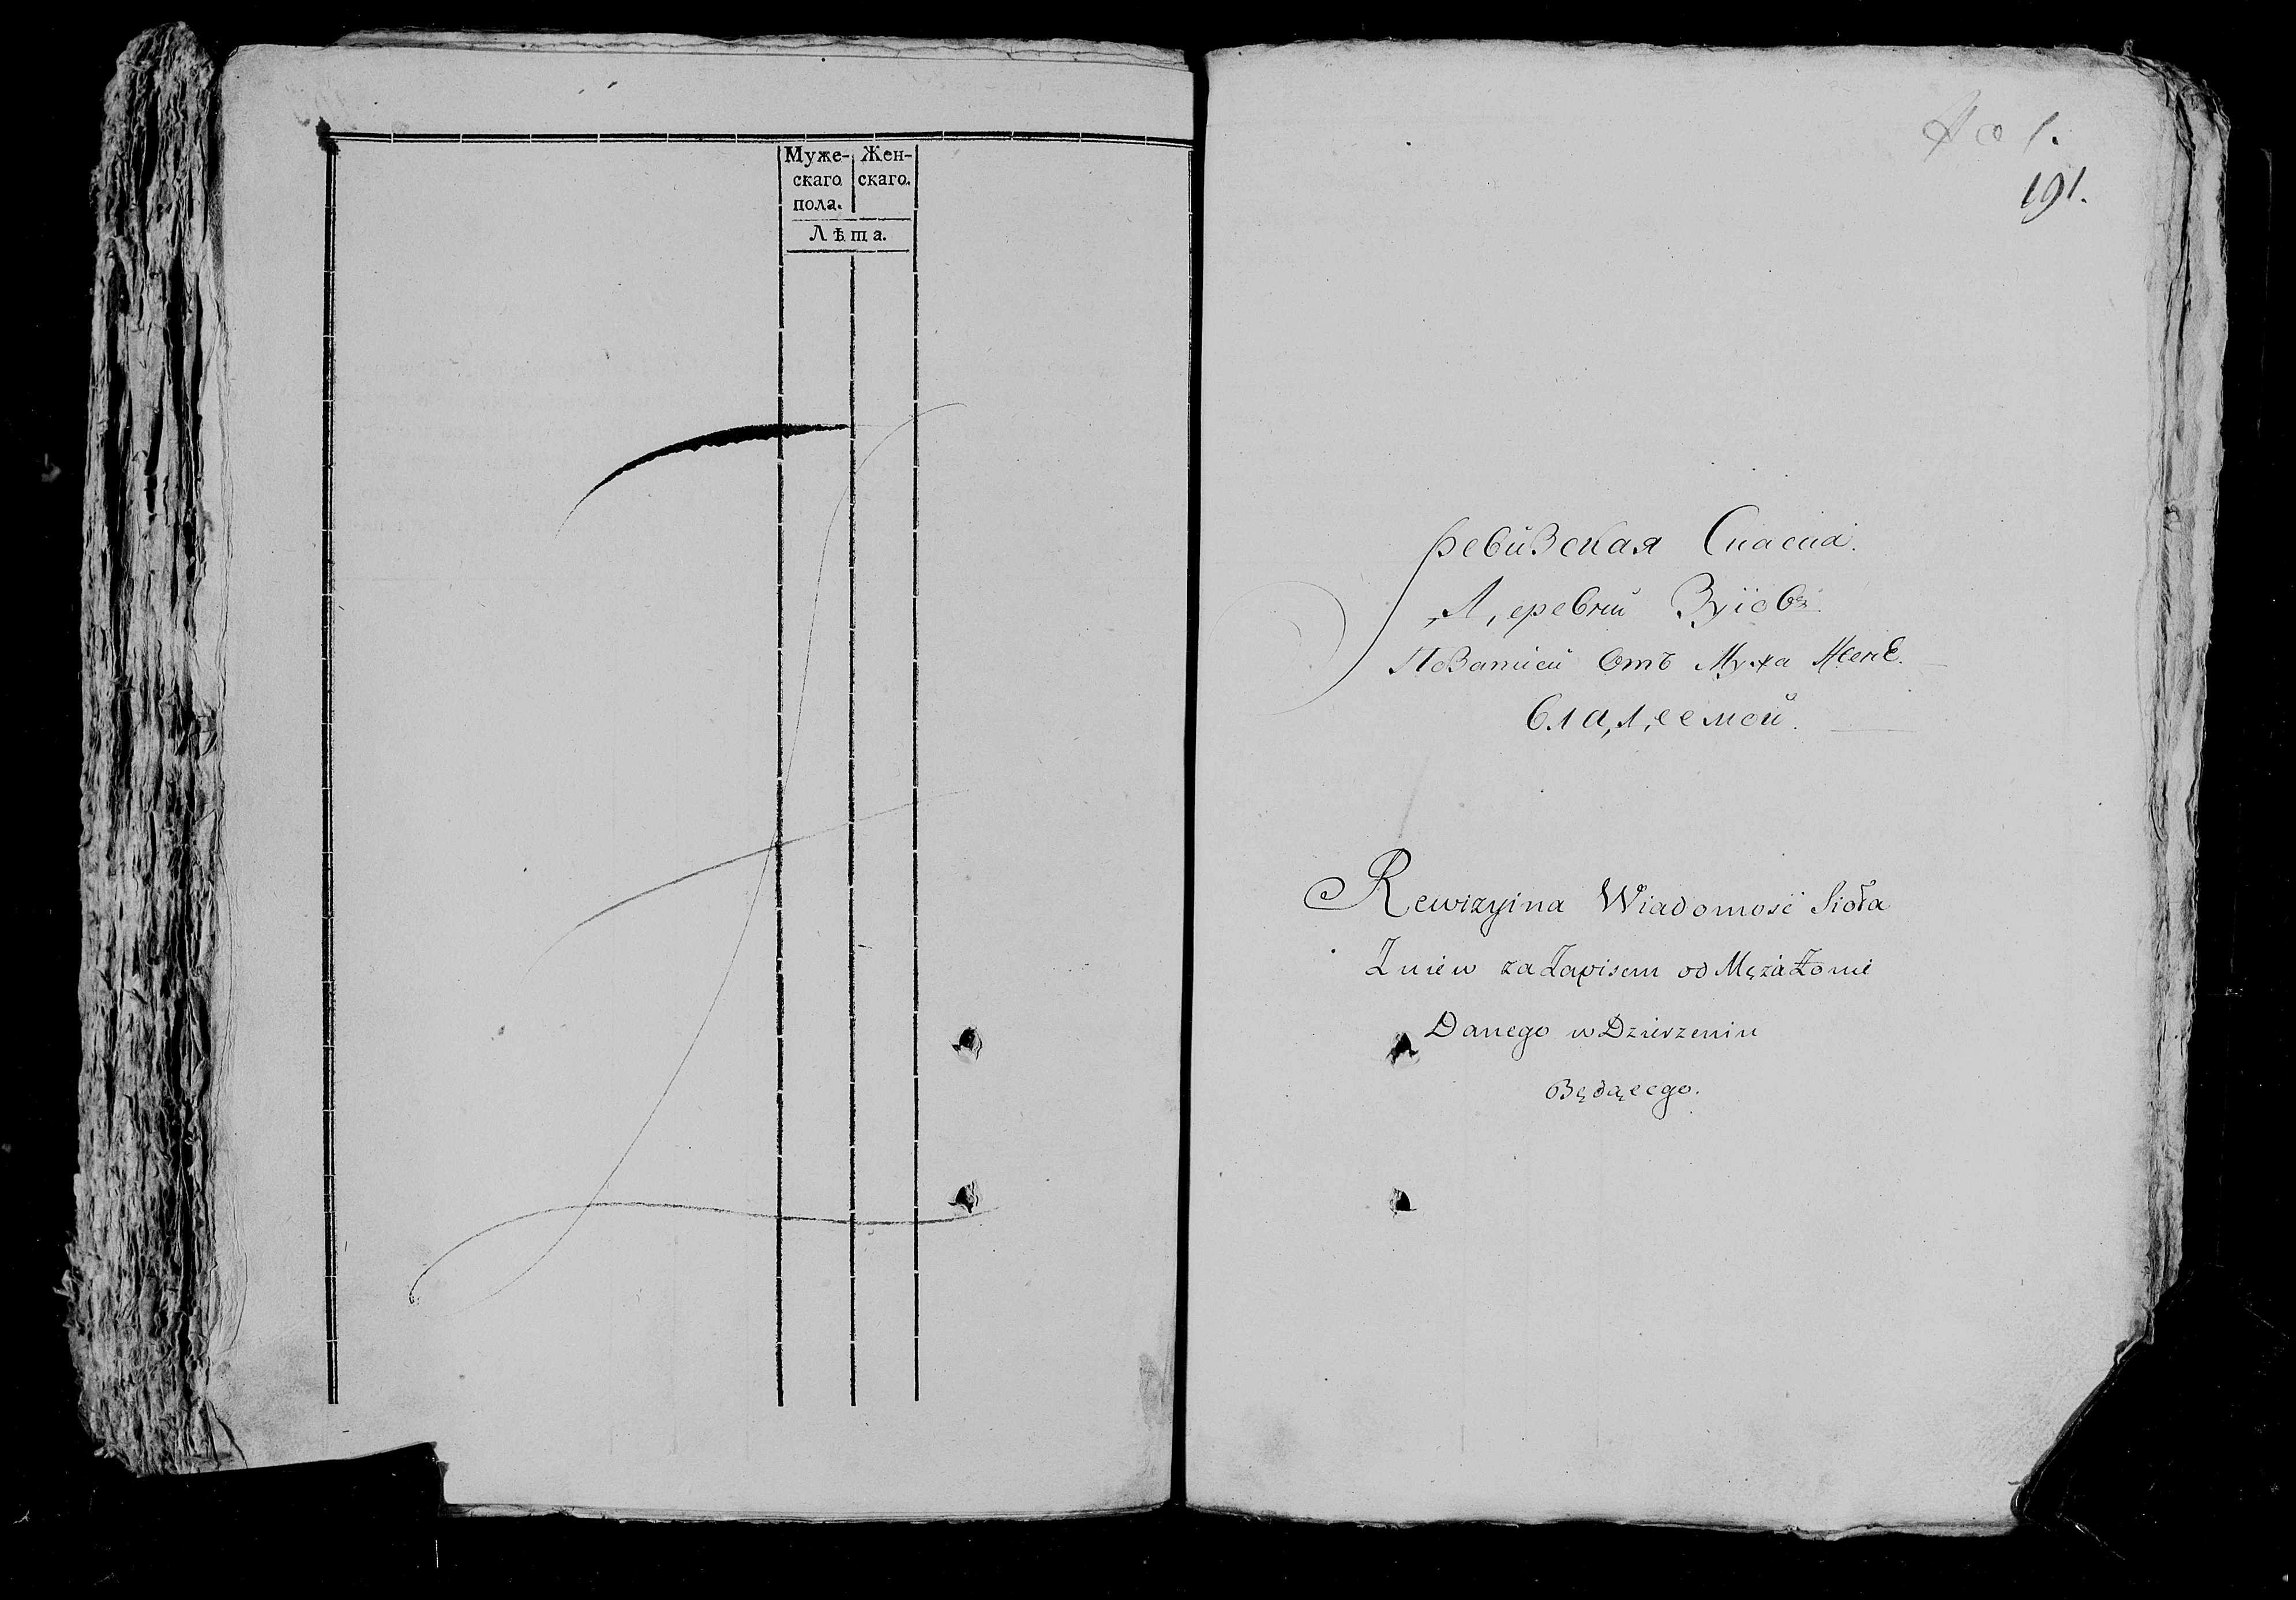 Муже- Жен-
скаго скаго.
пола.
Лѣта.
191.
Ревизская Сказка.
Деревни
По Записи Отъ Мужа Женѣ
Владеемой.
Rewizyina Wiadomosć Sioła
Zniew za Zapisem od Męża Żonie
Danego w Dzierzeniu
Będącego.